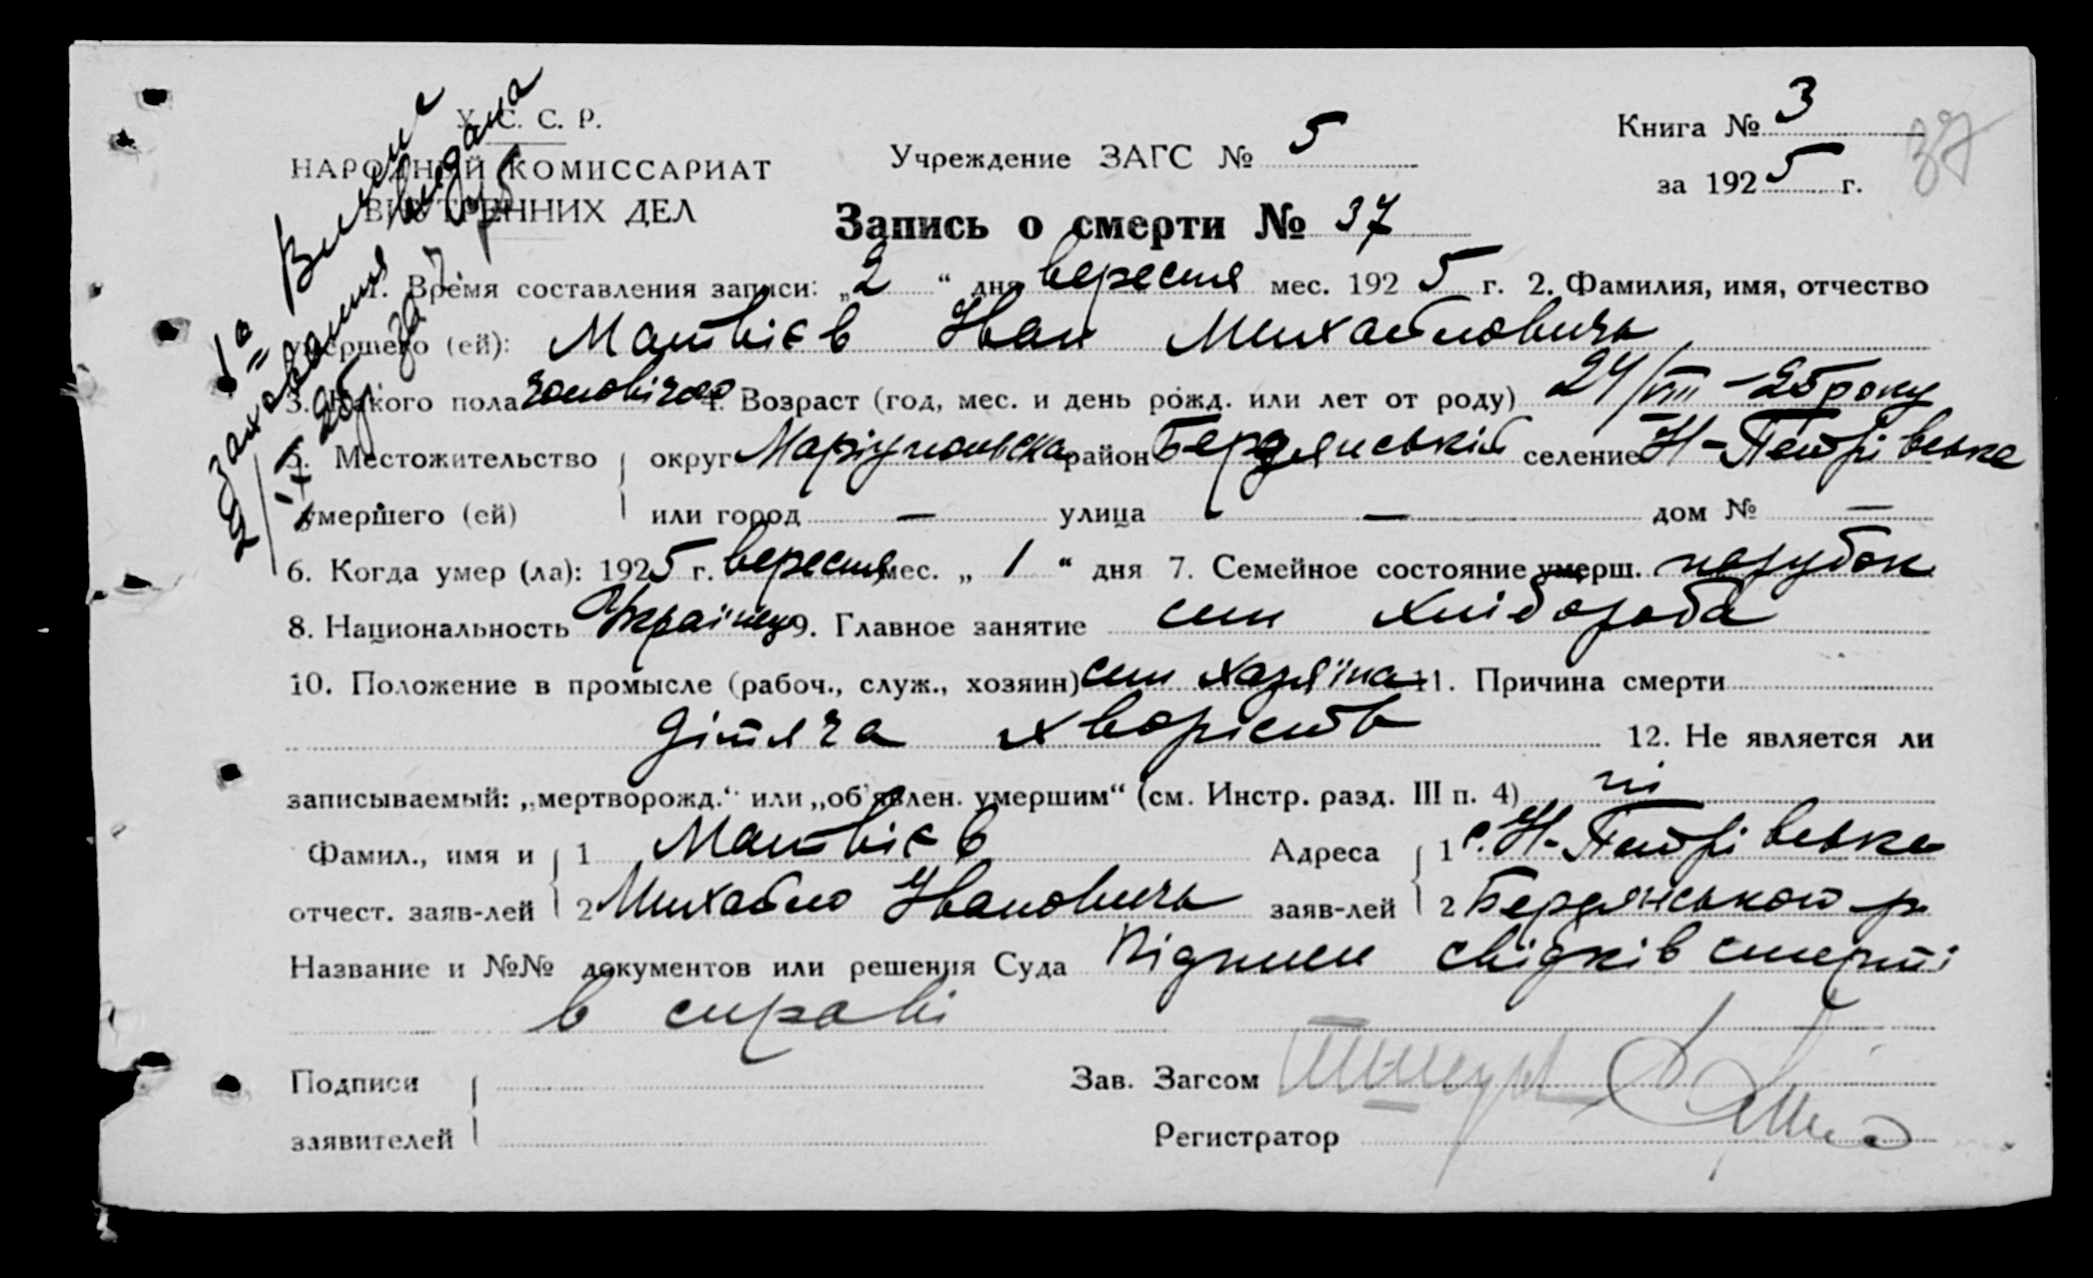 У. С. С. Р.
НАРОДНЫЙ КОМИССАРИАТ
ВНУТРЕННИХ ДЕЛ
Учреждение ЗАГС № 5
Книга № 3
за 1925 г.
37
Запись о смерти № 37
1. Время составления записи: „2“ дня вересня мес. 1925 г. 2. Фамилия, имя, отчество
умершего (ей): Матвієв Іван Михайлович
3. Какого пола чоловічого 4. Возраст (год, мес. и день рожд. или лет от роду) 24/VIII-25 року
5. Местожительство умершего (ей) округ Маріупольська район Бердянський селение Н-Петрівська
или город — улица — дом № —
6. Когда умер (ла): 1925 г. вересня мес. „1“ дня 7. Семейное состояние умерш. парубок
8. Национальность Українець 9. Главное занятие син хлібороба
10. Положение в промысле (рабоч., служ., хозяин) син хазяїна 11. Причина смерти
дітяча хворість 12. Не является ли
записываемый: „мертворожд.“ или „об'явлен. умершим“ (см. Инстр. разд. III п. 4) ні
Фамил., имя и отчест. заяв-лей 1 Матвієв Адреса заяв-лей 1 с. Н-Петрівська
2 Михайло Іванович 2 Бердянського р.
Название и №№ документов или решения Суда Підписи свідків смерті
в справі
Подписи заявителей
Зав. Загсом
Регистратор
1а Виписка
заховання видана
2/IX 25р. за №